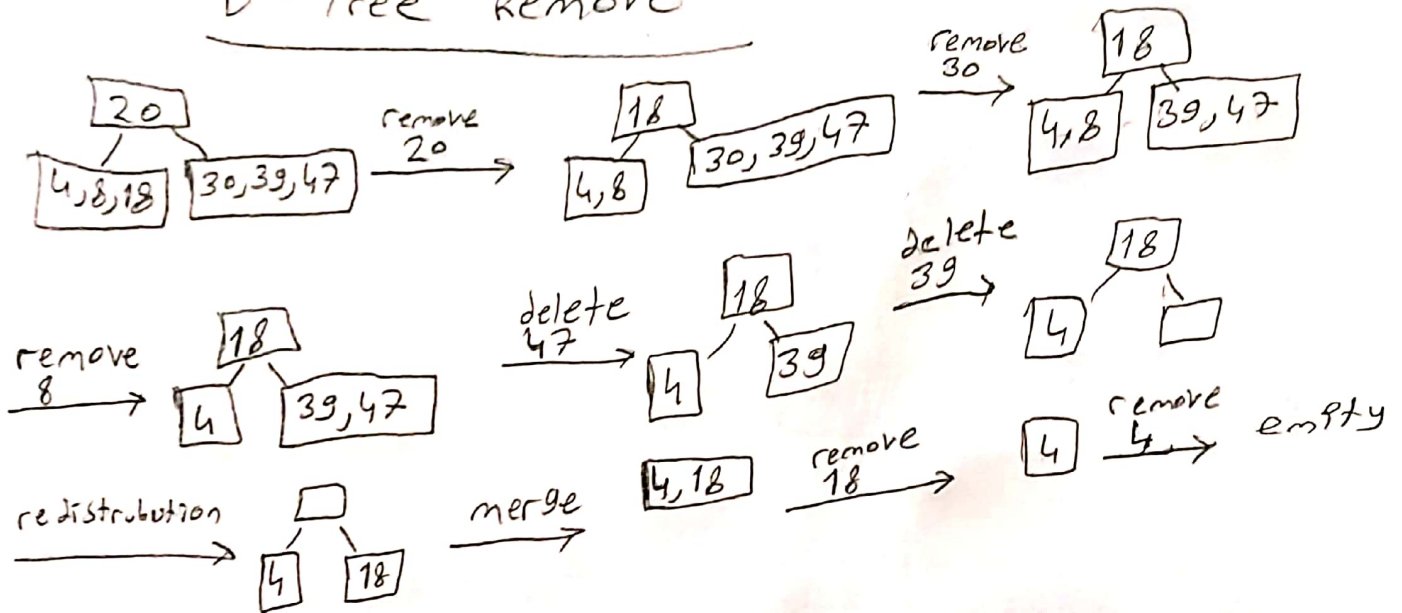 Tree Remove
20
4,8,18
30,39,47
remove
20
18
4,8
30,39,47
remove
30
18
4,8
39,47
remove
8
18
4
39,47
delete
47
18
4
39
delete
39
18
4
redistrubution
4
18
merge
4,18
remove
18
4
remove
4
empty